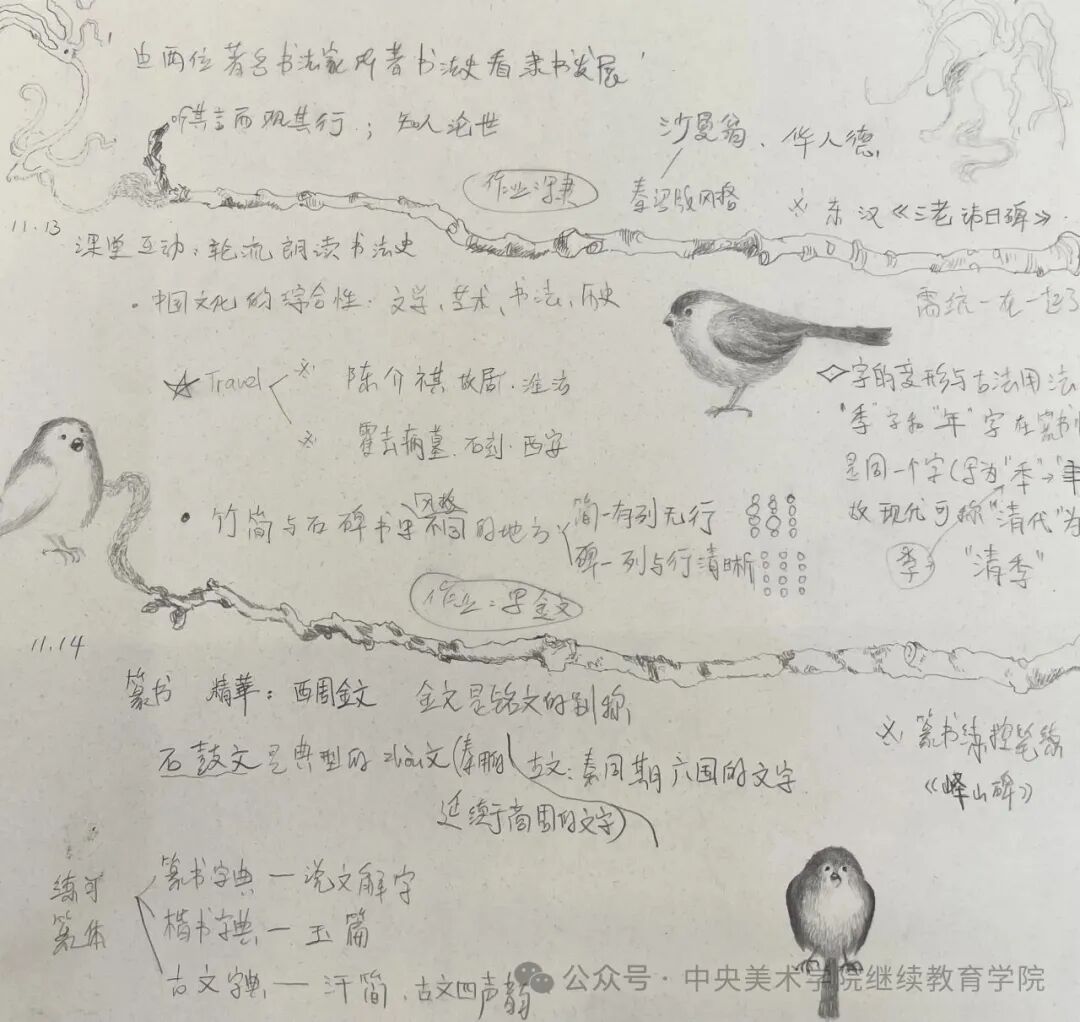 由两位著名书法家所著书法史看隶书发展
听其言而观其行；知人论世
沙曼翁、华人德
作业：隶书
秦汉版风格
※ 东汉《三老讳日碑》
11.13
课堂互动：轮流朗读书法史
需统一在一起了
·中国文化的综合性：文学、艺术、书法、历史
☆ Travel
※ 陈介祺故居·潍坊
※ 霍去病墓·石刻·西安
◇字的变形与古法用法
"季"字和"年"字在篆书
是同一个字(因为"季"→"年
故现代可称"清代"为
季
"清季"
• 竹简与石碑书里风格不同的地方
简-有列无行
碑-列与行清晰
作业：金文
11.14
篆书 精华：西周金文 金文是铭文的别称
石鼓文是典型的 文(秦
古文：秦同期六国的文字
延续于商周的文字)
※ 篆书练控笔线
《峄山碑》
练习
篆体
篆书字典—说文解字
楷书字典—玉篇
古文字典—汗简、古文四声韵
公众号·中央美术学院继续教育学院